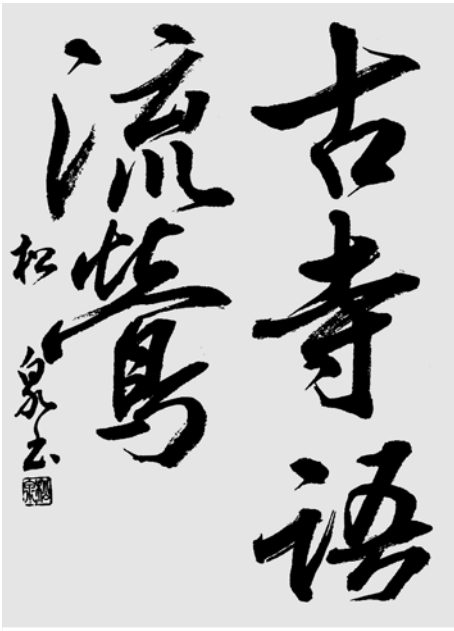 古寺語
流鶯
松泉书